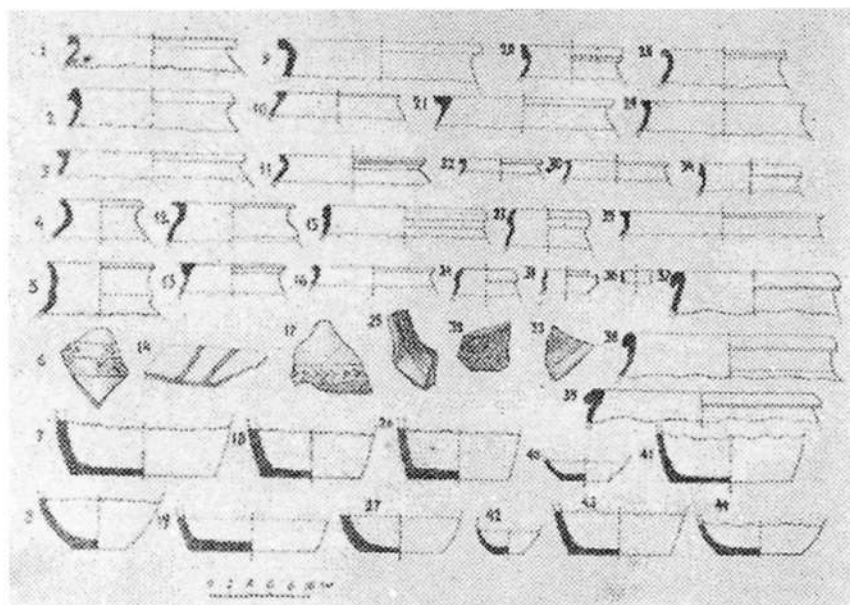 1 9 20 28
2 10 21 29
3 11 22 30 34
4 12 15 23 35
5 13 16 24 31 36 37
6 14 17 25 32 33 38
39
7 18 26 40 41
8 19 27 42 43 44
0 2